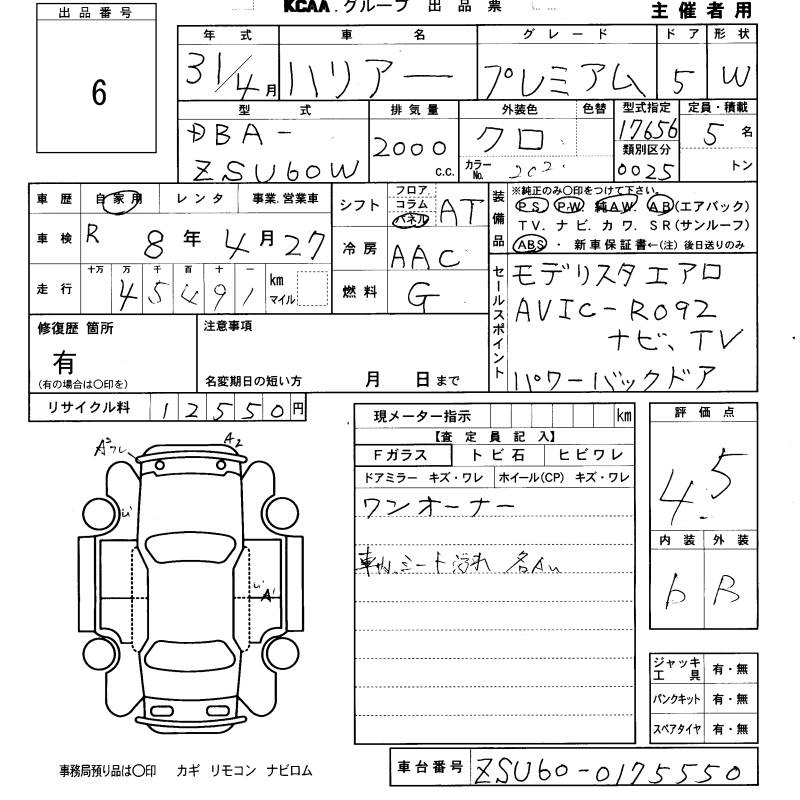 KCAA.グループ 出品票
主催者用
出品番号
6
年式 車名 グレード ドア 形状
31/4月 ハリアー プレミアム 5 W
型式 排気量 外装色 色替 型式指定 定員・積載
DBA- 2000 c.c. クロ 17656 5名
ZSU60W カラーNo. 202 類別区分 0025 トン
車歴 自家用 レンタ 事業.営業車
シフト フロア コラム パネル AT
装備品 ※純正のみ〇印をつけて下さい。
PS P.W. 純AW. AB(エアバック)
TV. ナビ. カワ. SR(サンルーフ)
ABS ・ 新車保証書←(注) 後日送りのみ
車検 R 8年4月27
冷房 AAC
走行 十万 万 千 百 十 一 km マイル
45491
燃料 G
セールスポイント
モデリスタエアロ
AVIC-R092
ナビ、TV
パワーバックドア
修復歴 箇所
有
(有の場合は〇印を)
注意事項
名変期日の短い方 月 日まで
リサイクル料 12550円
現メーター指示 km
【査定員記入】
Fガラス トビ石 ヒビワレ
ドアミラー キズ・ワレ ホイール(CP) キズ・ワレ
ワンオーナー
シート汚れ 各A
評価点
4.5
内装 外装
b B
A³ワレ A2
A¹
ジャッキ工具 有・無
パンクキット 有・無
スペアタイヤ 有・無
事務局預り品は〇印 カギ リモコン ナビロム
車台番号 ZSU60-0175550